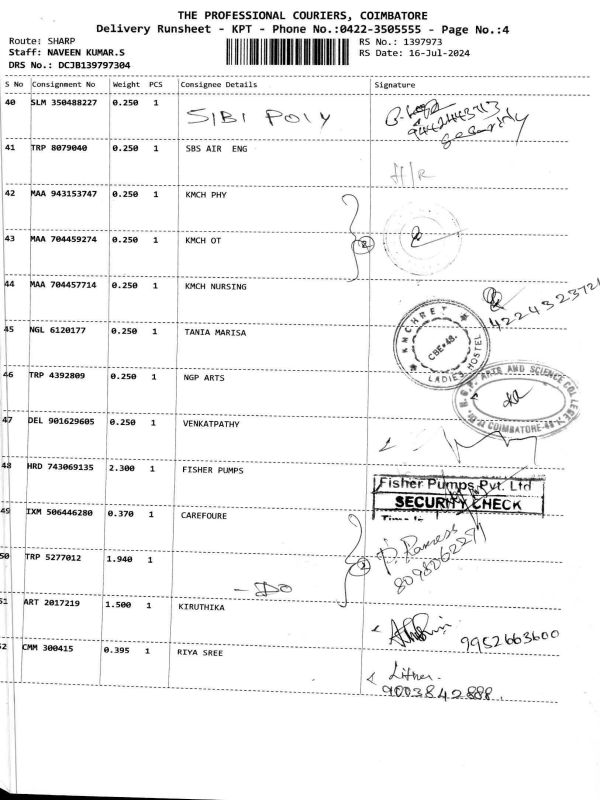 THE PROFESSIONAL COURIERS, COIMBATORE
Delivery Runsheet - KPT - Phone No.:0422-3505555 - Page No.:4
Route: SHARP
RS No.: 1397973
Staff: NAVEEN KUMAR.S
RS Date: 16-Jul-2024
DRS No.: DCJB139797304
S No Consignment No Weight PCS Consignee Details Signature
40 SLM 350488227 0.250 1 SIBI POLY
9442444313
Security
41 TRP 8079040 0.250 1 SBS AIR ENG
H/R
42 MAA 943153747 0.250 1 KMCH PHY
43 MAA 704459274 0.250 1 KMCH OT
44 MAA 704457714 0.250 1 KMCH NURSING
4224323721
KMCHRET
CBE-48.
LADIES HOSTEL
45 NGL 6120177 0.250 1 TANIA MARISA
46 TRP 4392809 0.250 1 NGP ARTS
N.G.P. ARTS AND SCIENCE COLLEGE
COIMBATORE-48
47 DEL 901629605 0.250 1 VENKATPATHY
48 HRD 743069135 2.300 1 FISHER PUMPS
Fisher Pumps Pvt. Ltd
SECURITY CHECK
Time In
49 IXM 506446280 0.370 1 CAREFOURE
50 TRP 5277012 1.940 1 - DO
51 ART 2017219 1.500 1 KIRUTHIKA
9952663600
52 CMM 300415 0.395 1 RIYA SREE
9003842888.